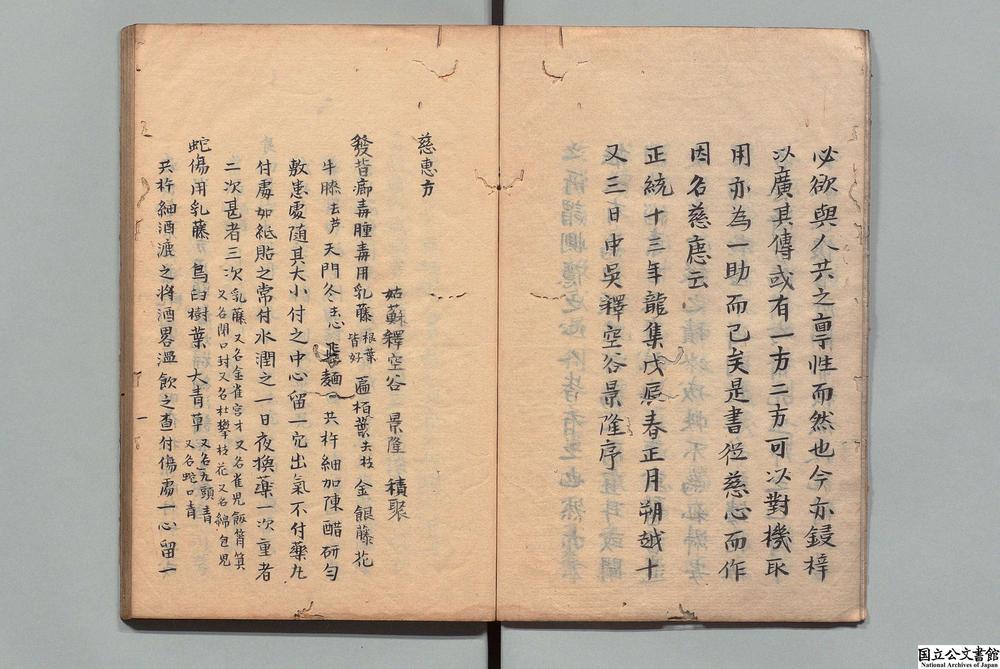 必欲與人共之稟性而然也今亦鋟梓
以廣其傳或有一方二方可以對機取
用亦為一助而已矣是書從慈心而作
因名慈應云
正統十三年龍集戊辰春正月朔越十
又三日中吳釋空谷景隆序
慈惠方
姑蘇釋空谷 景隆 積聚
發背癰毒腫毒用乳藤根葉皆好 匾栢葉去枝 金銀藤花
牛膝去芦 天門冬去心 麵 共杵細加陳醋研勻
敷患處隨其大小付之中心留一穴出氣不付藥九
付處如紙貼之常付水潤之一日夜換藥一次重者
二次甚者三次乳藤又名金雀宮才又名雀児飯筲箕又名開口封又名杜攀枝花又名綿包児
蛇傷用乳藤 烏臼樹葉 大青草又名九頭青又名蛇口青
共杵細酒漉之将酒畧温飲之査付傷處一心留一
一
国立公文書館
National Archives of Japan